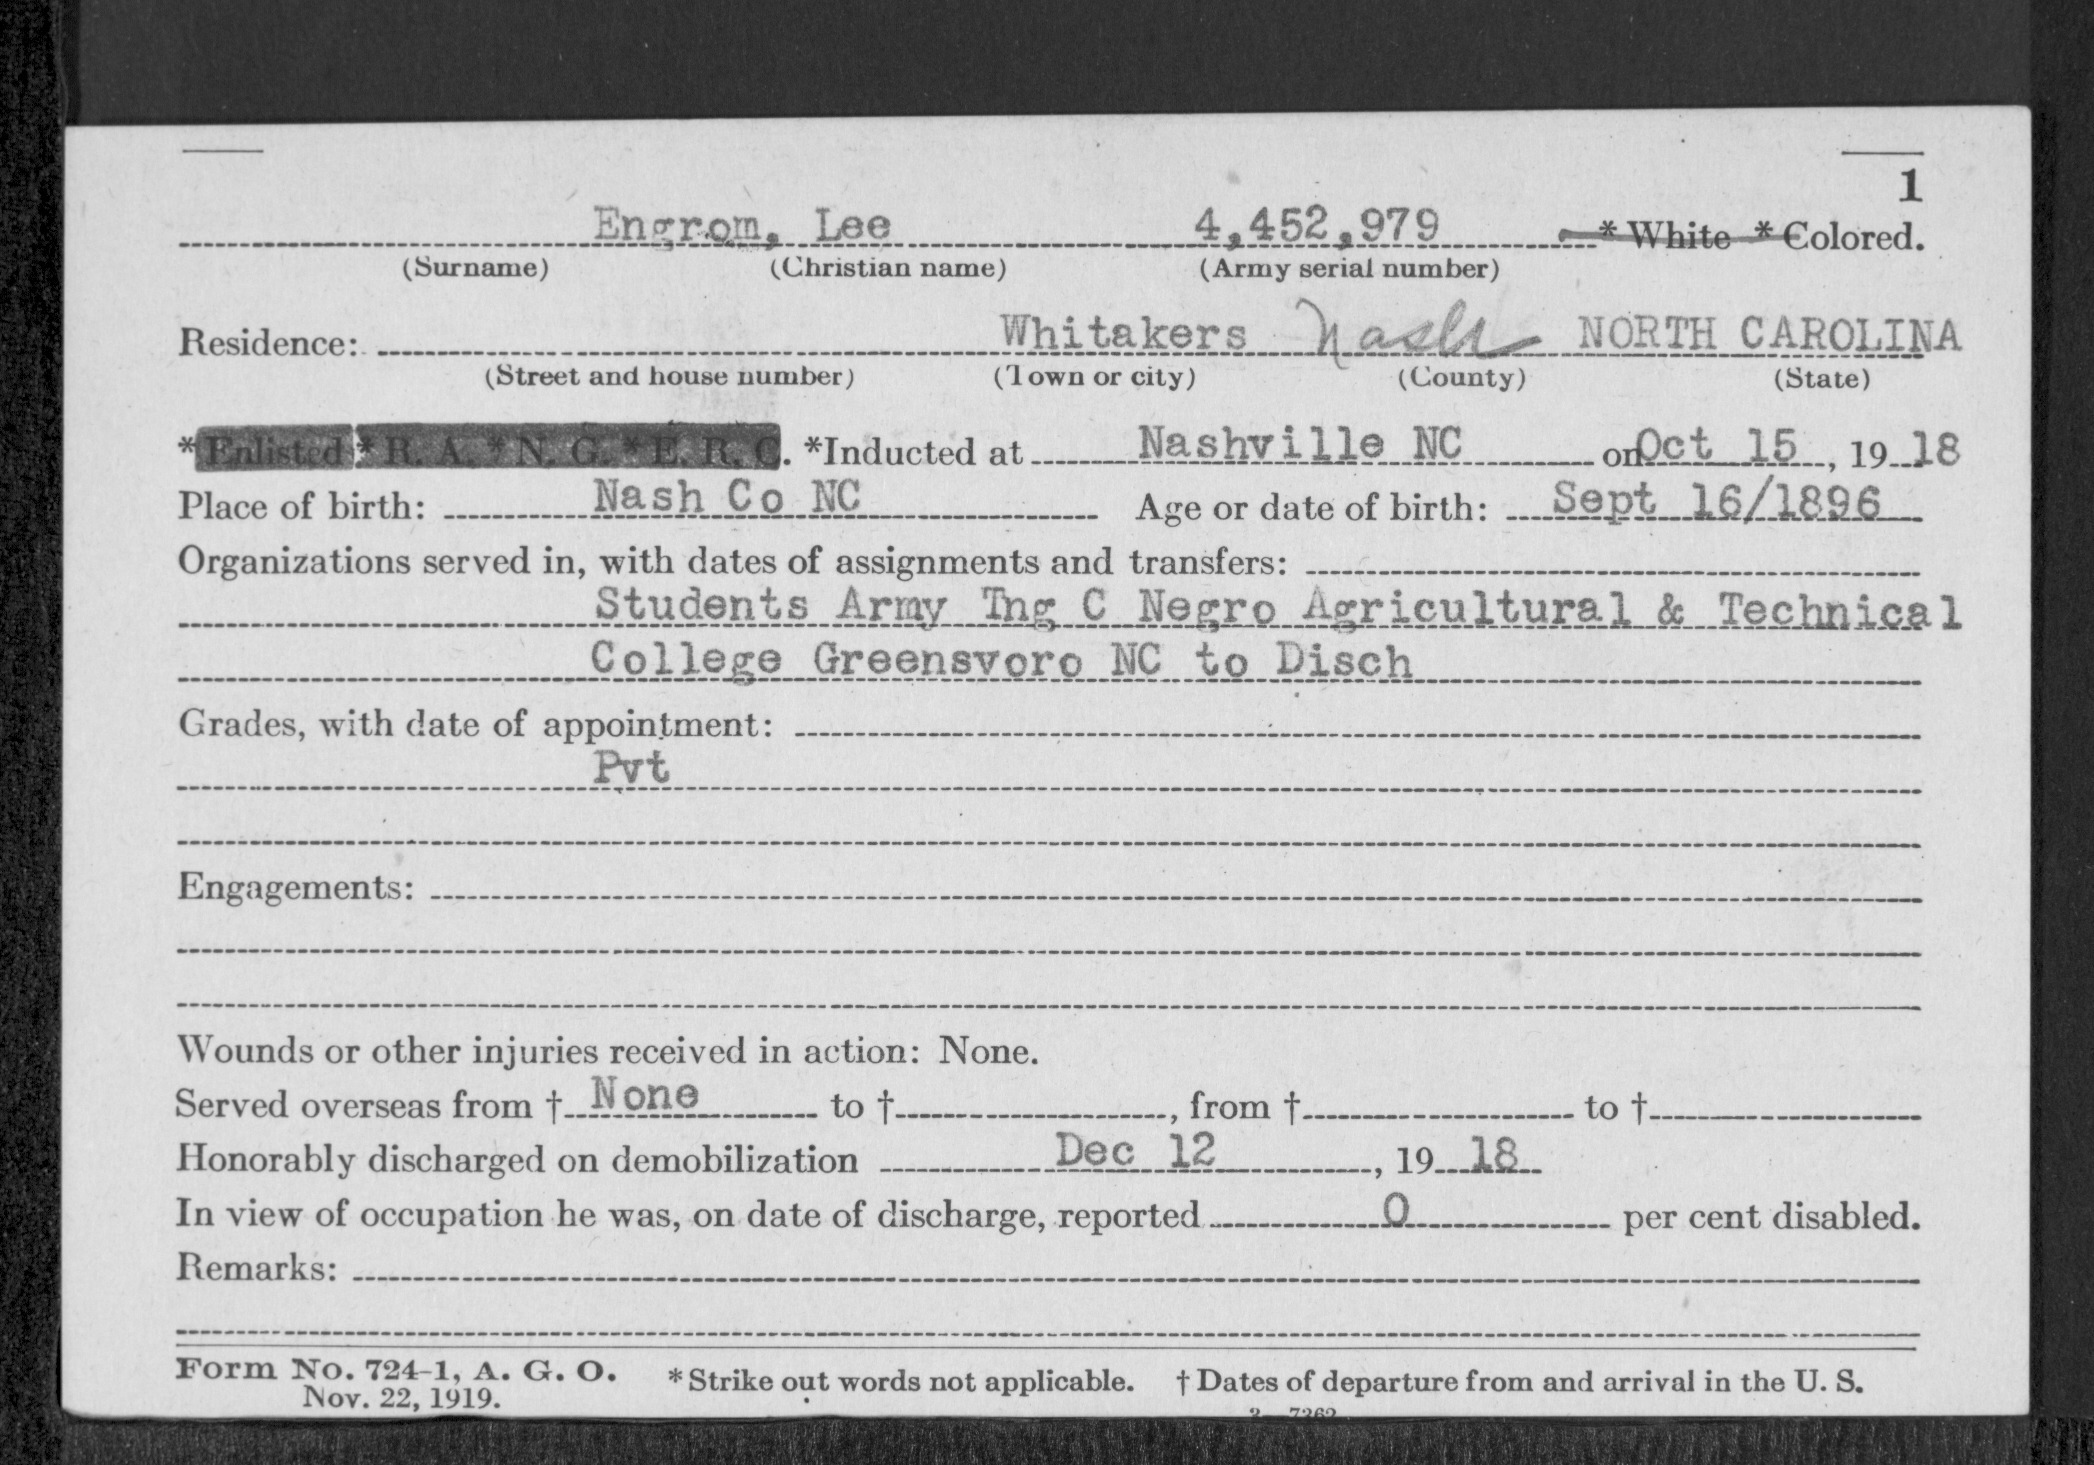 1
Engrom, Lee 4,452,979 * White * Colored.
(Surname) (Christian name) (Army serial number)
Residence: Whitakers Nash NORTH CAROLINA
(Street and house number) (Town or city) (County) (State)
* Enlisted * R. A. * N. G. * E. R. C. *Inducted at Nashville NC on Oct 15, 19 18
Place of birth: Nash Co NC Age or date of birth: Sept 16/1896
Organizations served in, with dates of assignments and transfers:
Students Army Tng C Negro Agricultural & Technical
College Greensvoro NC to Disch
Grades, with date of appointment:
Pvt
Engagements:
Wounds or other injuries received in action: None.
Served overseas from † None to †, from † to †
Honorably discharged on demobilization Dec 12, 19 18
In view of occupation he was, on date of discharge, reported 0 per cent disabled.
Remarks:
Form No. 724-1, A. G. O. * Strike out words not applicable. † Dates of departure from and arrival in the U. S.
Nov. 22, 1919.